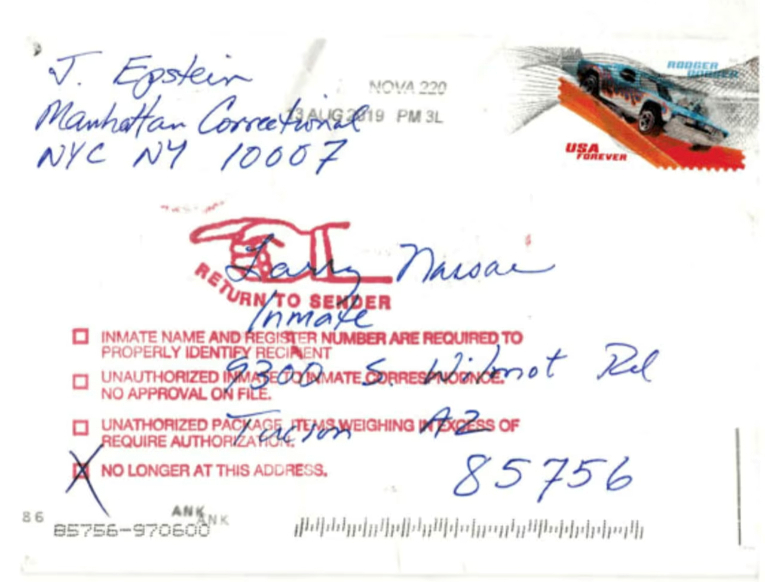 J. Epstein
Manhattan Correctional
NYC NY 10007
NOVA 220
13 AUG 2019 PM 3L
RODGER DODGER
USA
FOREVER
Larry Nassar
RETURN TO SENDER
Inmate
INMATE NAME AND REGISTER NUMBER ARE REQUIRED TO
PROPERLY IDENTIFY RECIPIENT
9300 S. Wilmot Rd
UNAUTHORIZED INMATE TO INMATE CORRESPONDNCE.
NO APPROVAL ON FILE.
Tucson AZ
UNATHORIZED PACKAGE, ITEMS WEIGHING IN EXCESS OF
REQUIRE AUTHORIZATION.
X NO LONGER AT THIS ADDRESS.
85756
86
ANK
ANK
85756-970600